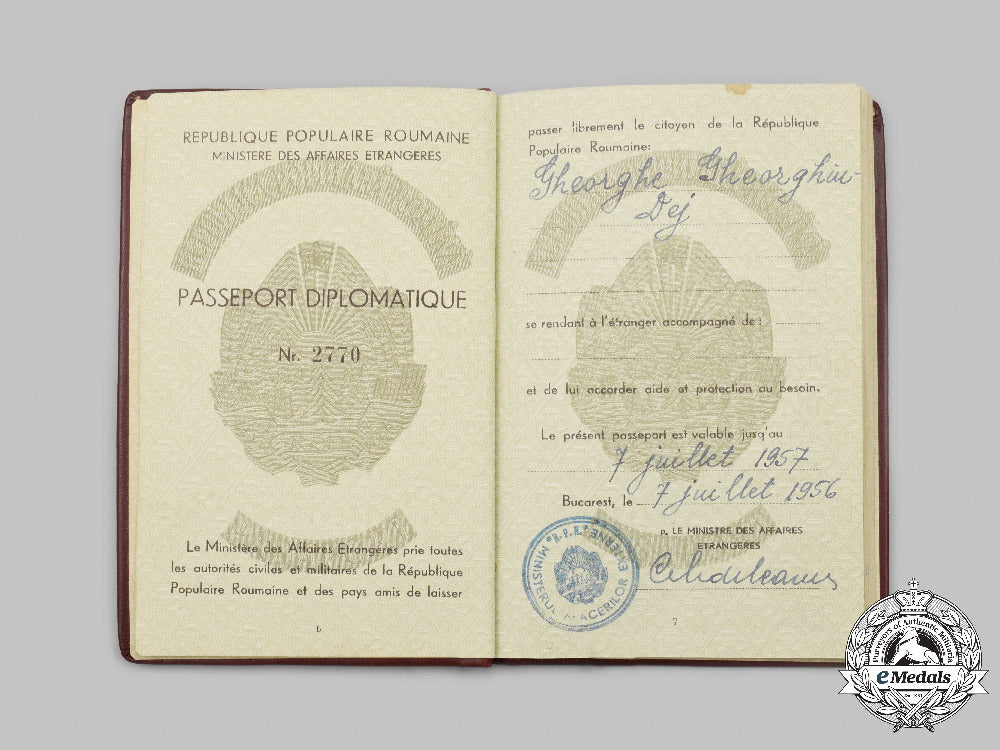 REPUBLIQUE POPULAIRE ROUMAINE
MINISTERE DES AFFAIRES ETRANGERES
PASSEPORT DIPLOMATIQUE
Nr. 2770
Le Ministère des Affaires Etrangeres prie toutes
les autorités civiles et militaires de la République
Populaire Roumaine et des pays amis de laisser
6
passer librement le citoyen de la République
Populaire Roumaine:
Gheorghe Gheorghiu-
Dej
se rendant à l'étranger accompagné de:
et de lui accorder aide et protection au besoin.
Le présent passeport est valable jusqu'au
7 juillet 1957
Bucarest, le 7 juillet 1956
p. LE MINISTRE DES AFFAIRES
ETRANGERES
R.P.R.
MINISTERUL AFACERILOR EXTERNE
7
Purveyors of Authentic Militaria
eMedals